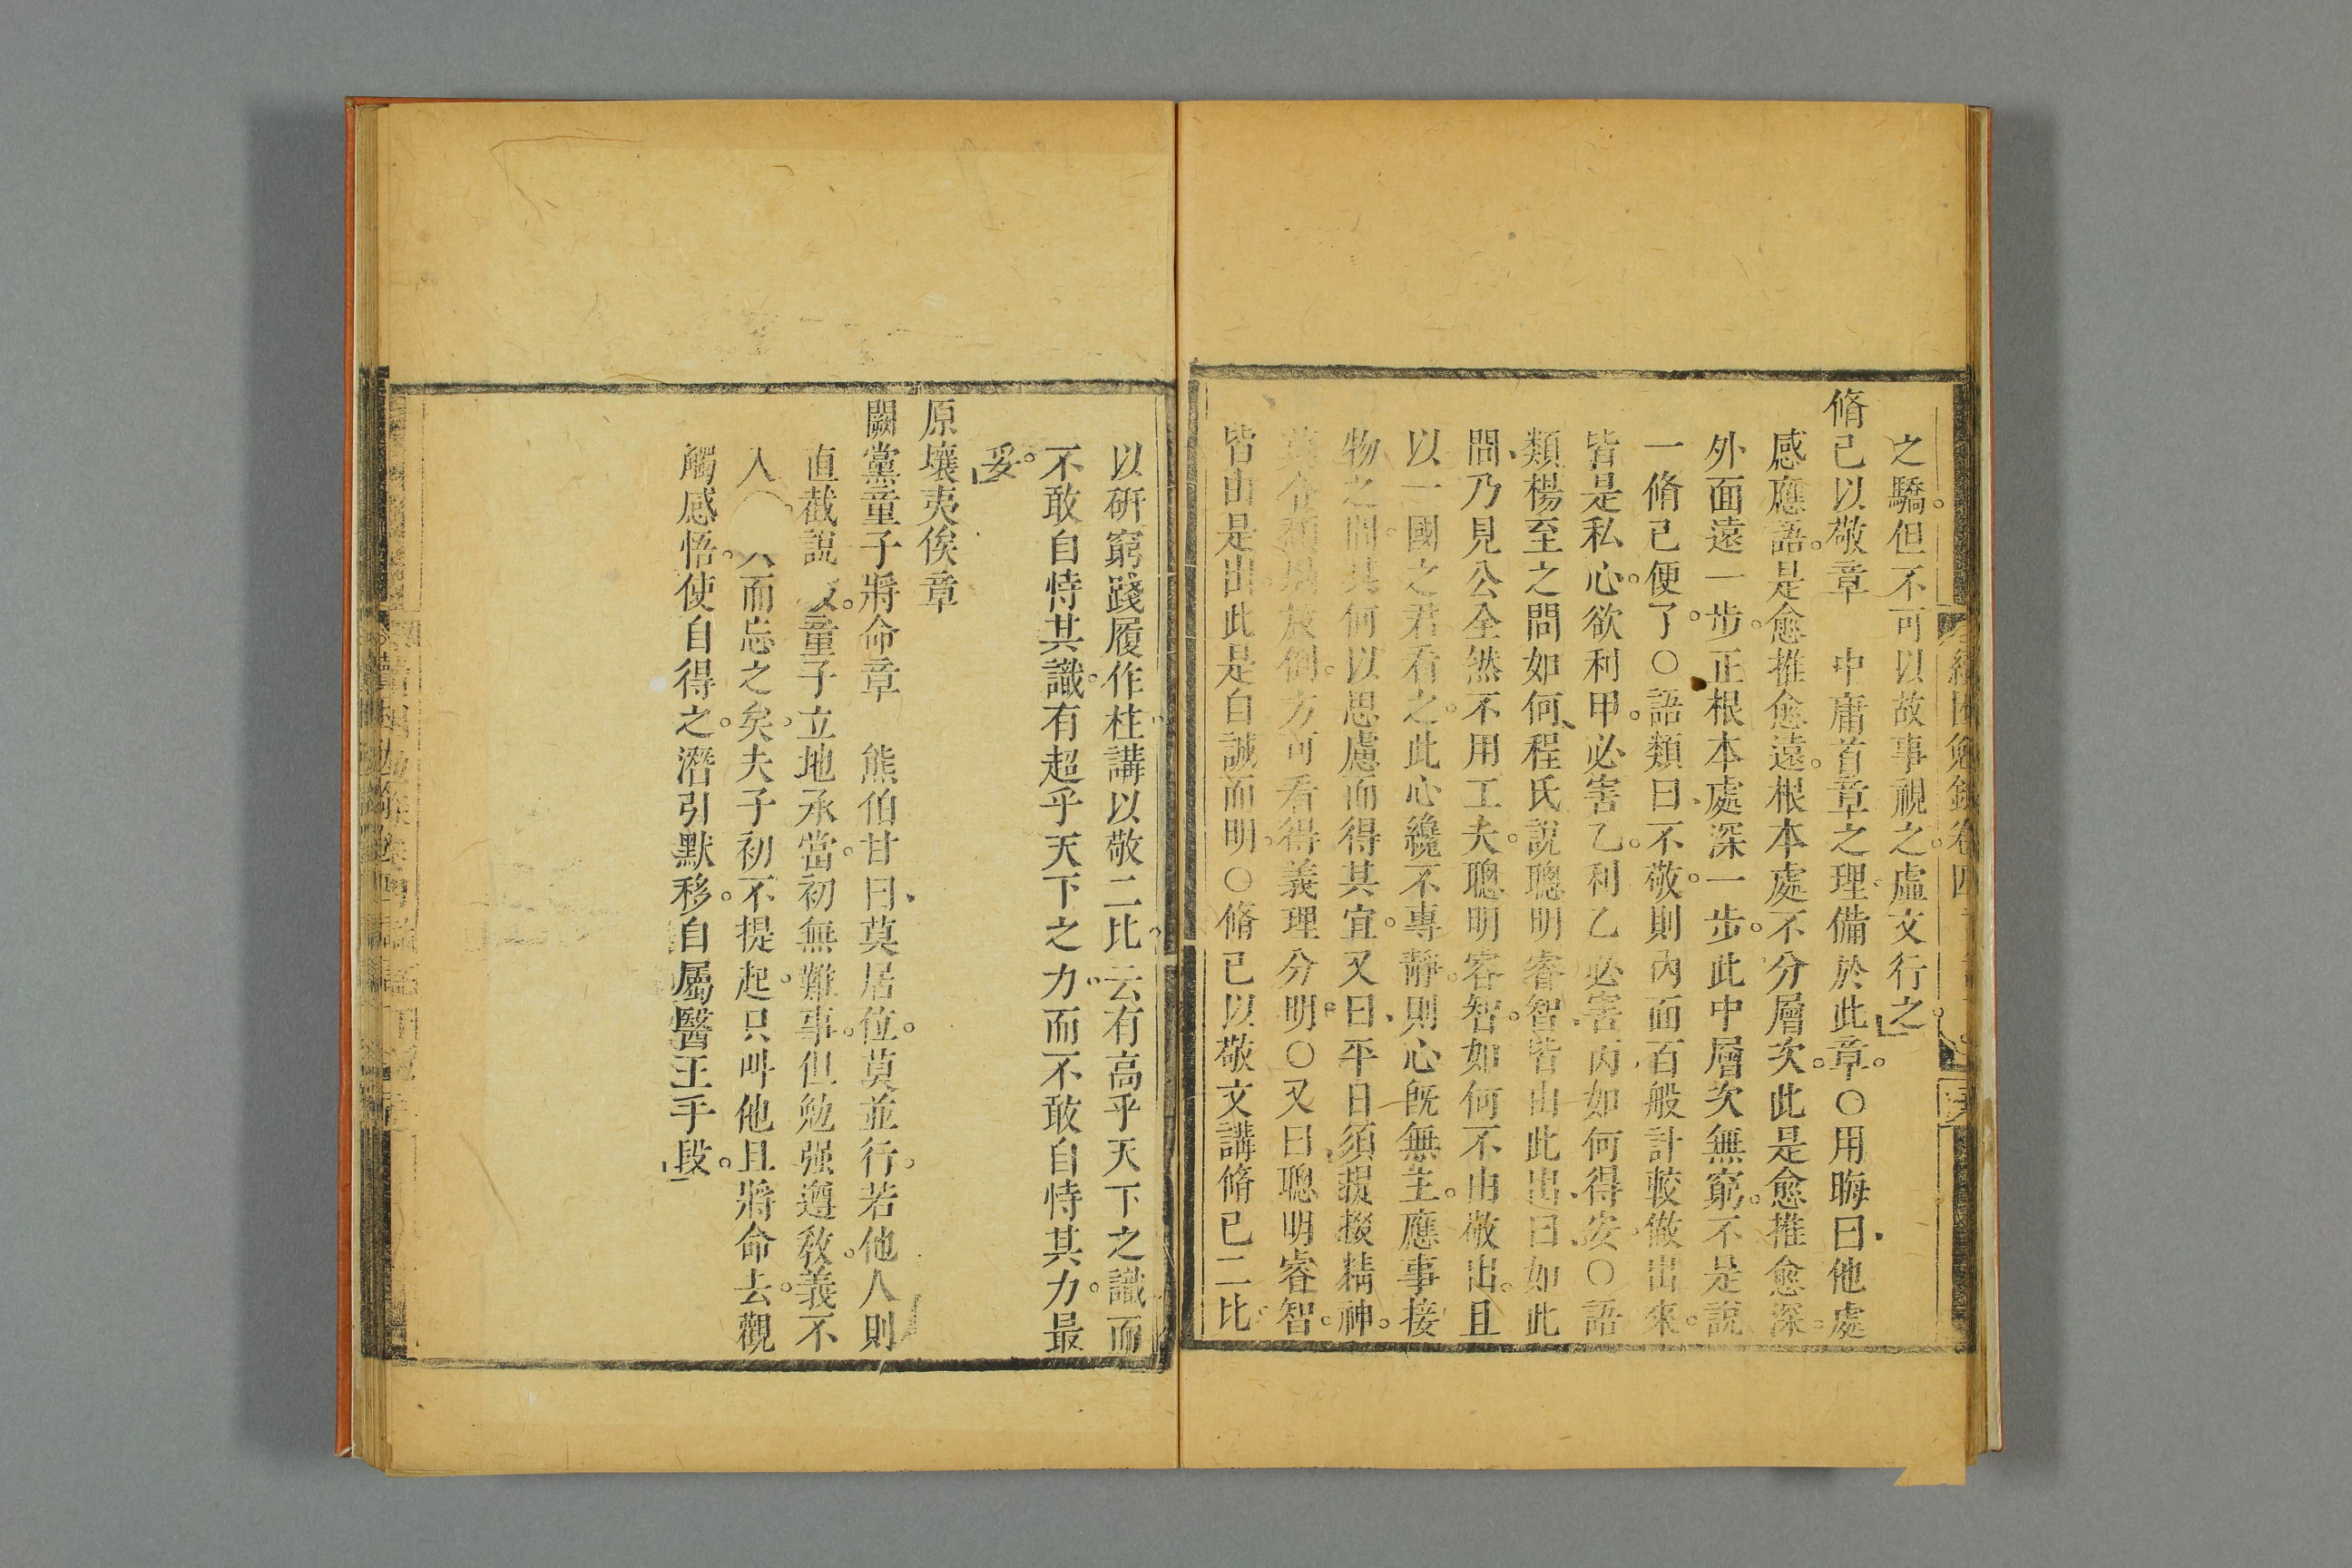 之驕但不可以故事視之虛文行之
脩己以敬章　中庸首章之理備於此章○用晦曰他處
感應語是愈推愈遠根本處不分層次此是愈推愈深
外面遠一步正根本處深一步此中層次無窮不是說
一脩己便了○語類曰不敬則內面百般計較做出來
皆是私心欲利甲必害乙利乙必害丙如何得安○語
類楊至之問如何程氏說聰明睿智皆由此出曰如此
問乃見公全然不用工夫聰明容智如何不由敬出且
以一國之君看之此心纔不專靜則心旣無主應事接
物之間其何以思慮而得其宜又曰平日須提掇精神
方可看得義理分明○又曰聰明睿智
皆由是出此是自誠而明○脩己以敬文講脩己二比
以硏窮踐履作柱講以敬二比云有高乎天下之識而
不敢自恃其識有超乎天下之力而不敢自恃其力最
妥
原壤夷俟章
闕黨童子將命章　熊伯甘曰莫居位莫並行若他人則
直截說童子立地承當初無難事但勉强遵敎義不
入而忘之矣夫子初不提起只叫他且將命去觀
觸感悟使自得之潛引默移自屬醫王手段